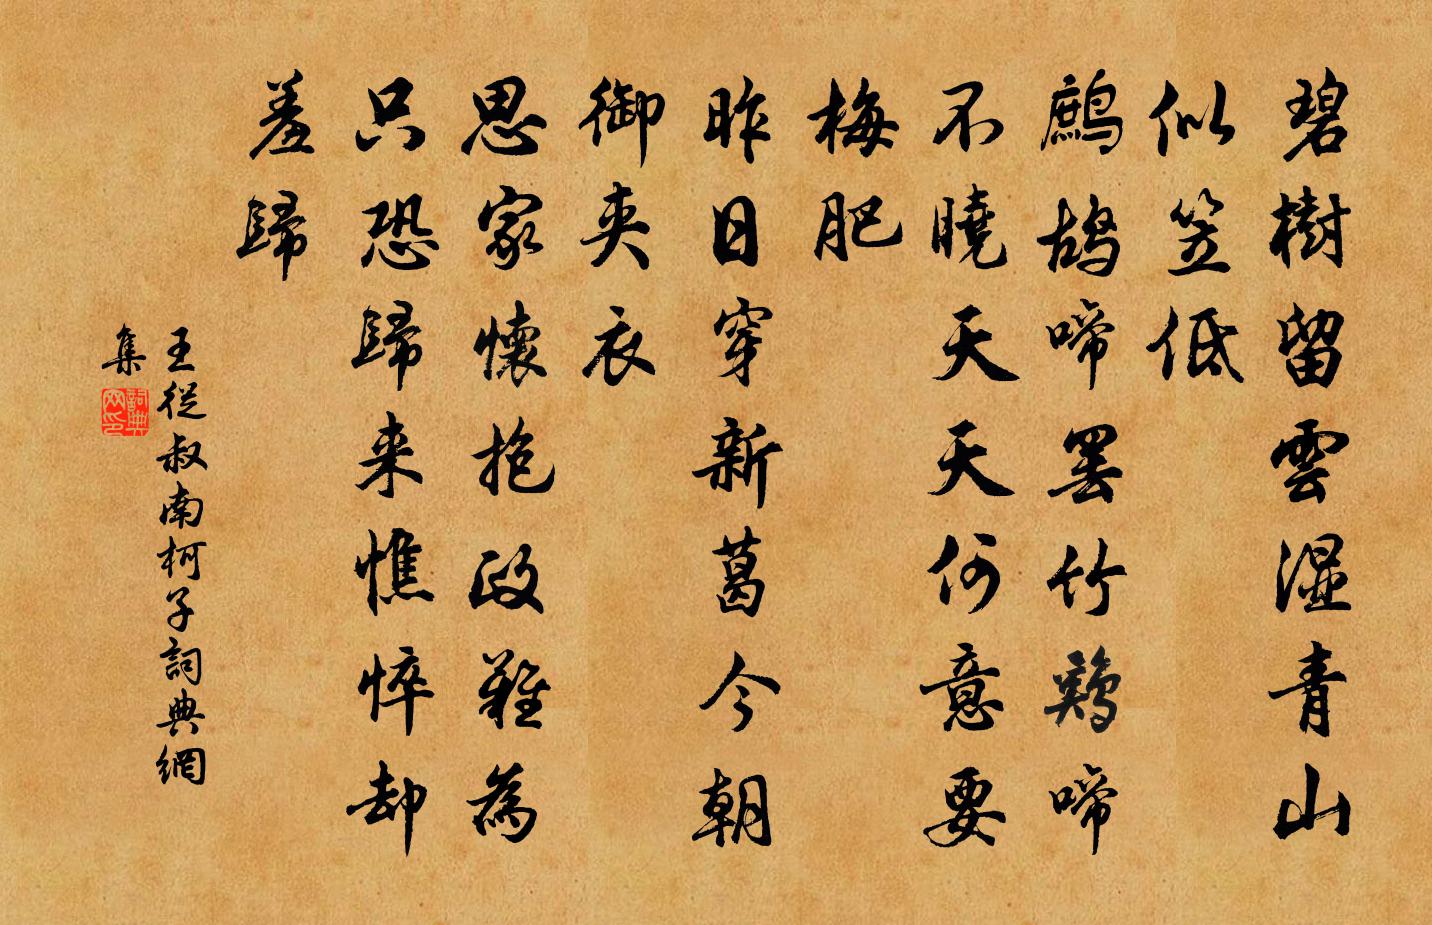 碧樹留雲濕青山
似笠低
鷓鴣啼罷竹鶏啼
不曉天天何意要
梅肥
昨日穿新葛今朝
御夾衣
思家懷抱政難為
只恐歸来憔悴却
羞歸
王從叔南柯子詞典網
集
詞典網印